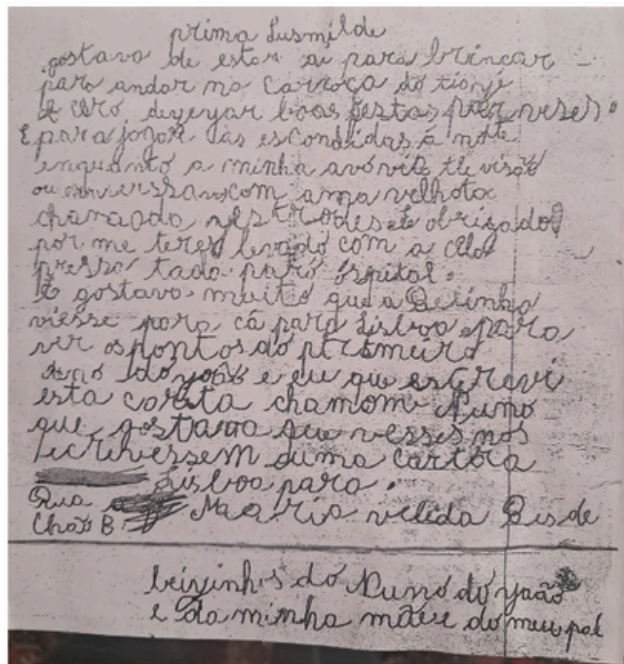 prima Lusmilde
gostava de estar ai para brincar
para andar na carroça do tio zé
E cero dezeyar boas festas por veser.
E para jogar ás escondidas á noite
enquanto a minha avó vite tle visão
ou com uma velhota
chamada obrigado
por me teres levado com a
pressa tada paró óspital.
E gostava muito que a Betinha
viesse para cá para Lisboa e para
ver os pontos do pirsmeiro
Ano do yoão e eu que esterevi
esta corita chamom Nuno
que gostava que vessesnos
Lcrivessem duma cartora
Lisboa para.
Rua Maaria velida Bisde
Chão B.
beizinhos do Nuno do yoão
e Da minha mãe e do meu pai